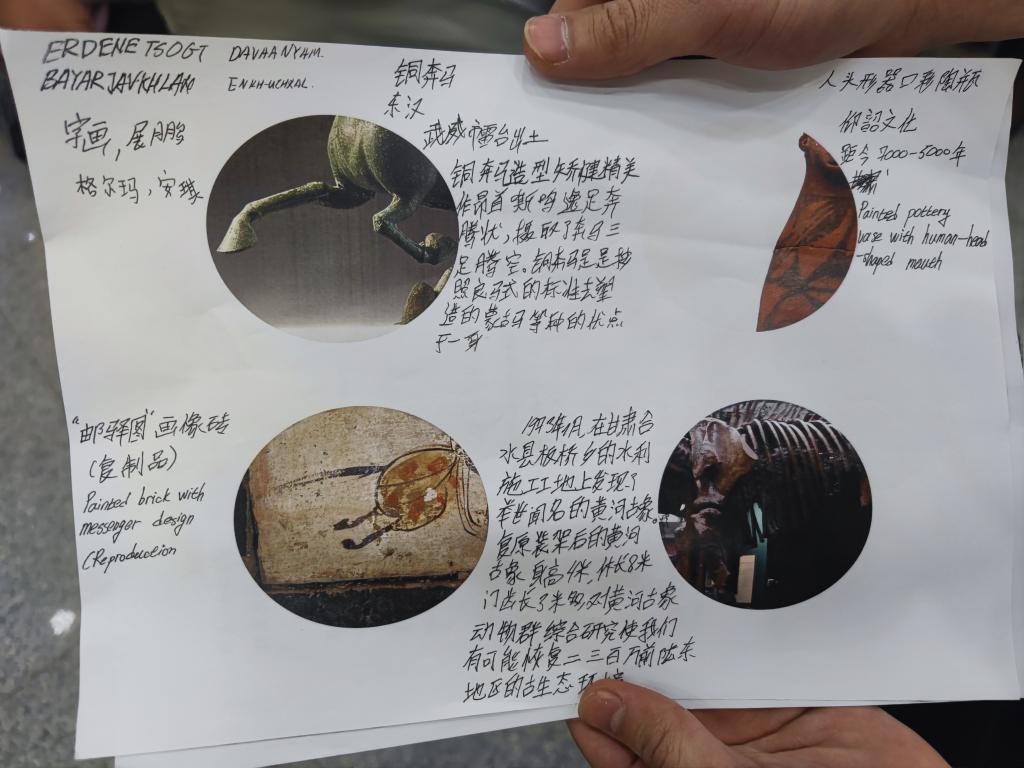 ERDENETSOGT DAVAANYAM.
BAYARJAVKHLAN ENKH-UCHRAL.
字画, 展鹏
格尔玛,
铜奔马
东汉
武威市雷台出土
铜奔马造型矫健精美
作昂首嘶鸣 足奔
腾状, 取了奔马三
足腾空。铜奔马是
照良马式的标准去塑
造的蒙古马等种的优点
于一身
人头形器口彩陶瓶
仰韶文化
距今7000-5000年
Painted pottery
vase with human-head
-shaped mouth
"邮驿图"画像砖
(复制品)
Painted brick with
messenger design
(Reproduction
1973年 月在甘肃合
水县板桥乡的水利
施工工地上发现了
举世闻名的黄河古象。
复原装架后的黄河
古象身高4米,体长8米
门齿长3米多,对黄河古象
动物群综合研究使我们
有可能恢复二三百万前陇东
地区的古生态环境